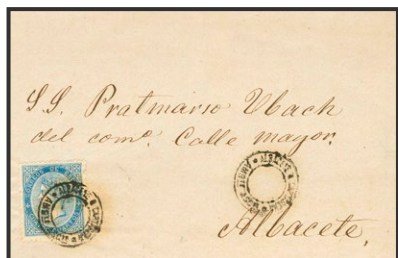 S.S. Pratmarso Ubach
del comº. Calle mayor.
Albacete,